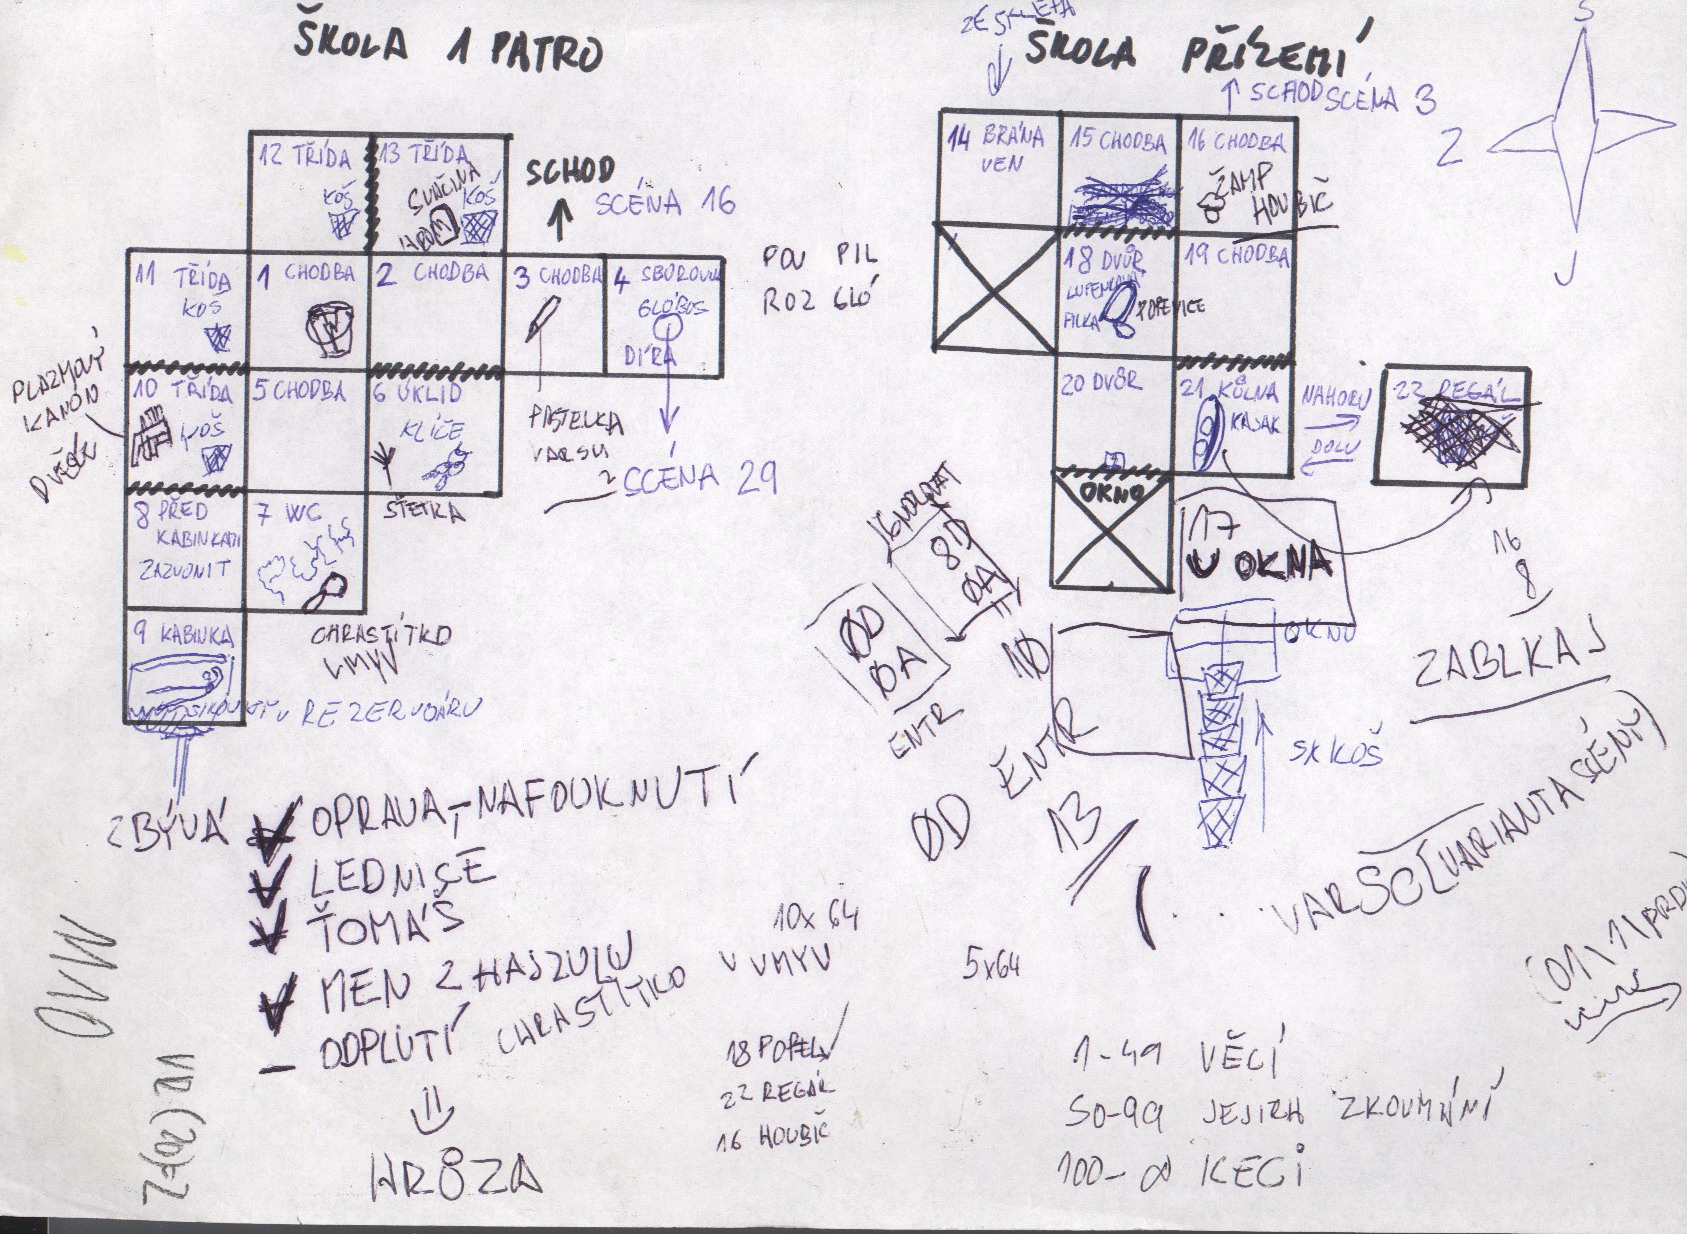 ŠKOLA 1 PATRO
12 TŘÍDA
KOŠ
13 TŘÍDA
SVAČINA
KOŠ
SCHOD
SCÉNA 16
11 TŘÍDA
KOŠ
1 CHODBA
2 CHODBA
3 CHODBA
4 SBOROVNA
GLÓBOS
DÍRA
POV PIL
ROZ GLÓ
PLAZMOVÝ
KANÓN
10 TŘÍDA
KOŠ
5 CHODBA
6 ÚKLID
KLÍČE
ŠTĚTKA
PASTELKA
SCÉNA 29
8 PŘED
KABINKAMI
ZAZVONIT
7 WC
CHRASTÍTKO
UMYV
9 KABINKA
REZERVOÁRU
ZBÝVÁ
OPRAVA, NAFOUKNUTÍ
LEDNICE
ŤOMÁŠ
MEN Z HAJZULU
ODPLUTÍ CHRASTÍTKO
HRŮZA
10x64
V UMYV
5x64
18 POPEL
22 REGÁL
16 HOUBIČ
ŠKOLA PŘÍZEMÍ
ZE SKLEPA
SCHOD SCÉNA 3
S
Z
J
14 BRÁNA
VEN
15 CHODBA
16 CHODBA
ŽAMP
HOUBIČ
18 DVŮR
LUPENKOVÁ
PILKA
POPELNICE
19 CHODBA
20 DVŮR
21 KŮLNA
KAJAK
NAHORU
DOLU
22 REGÁL
OKNO
17
U OKNA
OKNO
5x KOŠ
IGNOROVAT
8D
0A
0D
0A
ENTR
10
0D ENTR
13
16
8
ZABLKAJ
VARSCE(VARIANTA SCÉNY)
1-49 VĚCÍ
50-99 JEJICH ZKOUMÁNÍ
100-∞ KECI